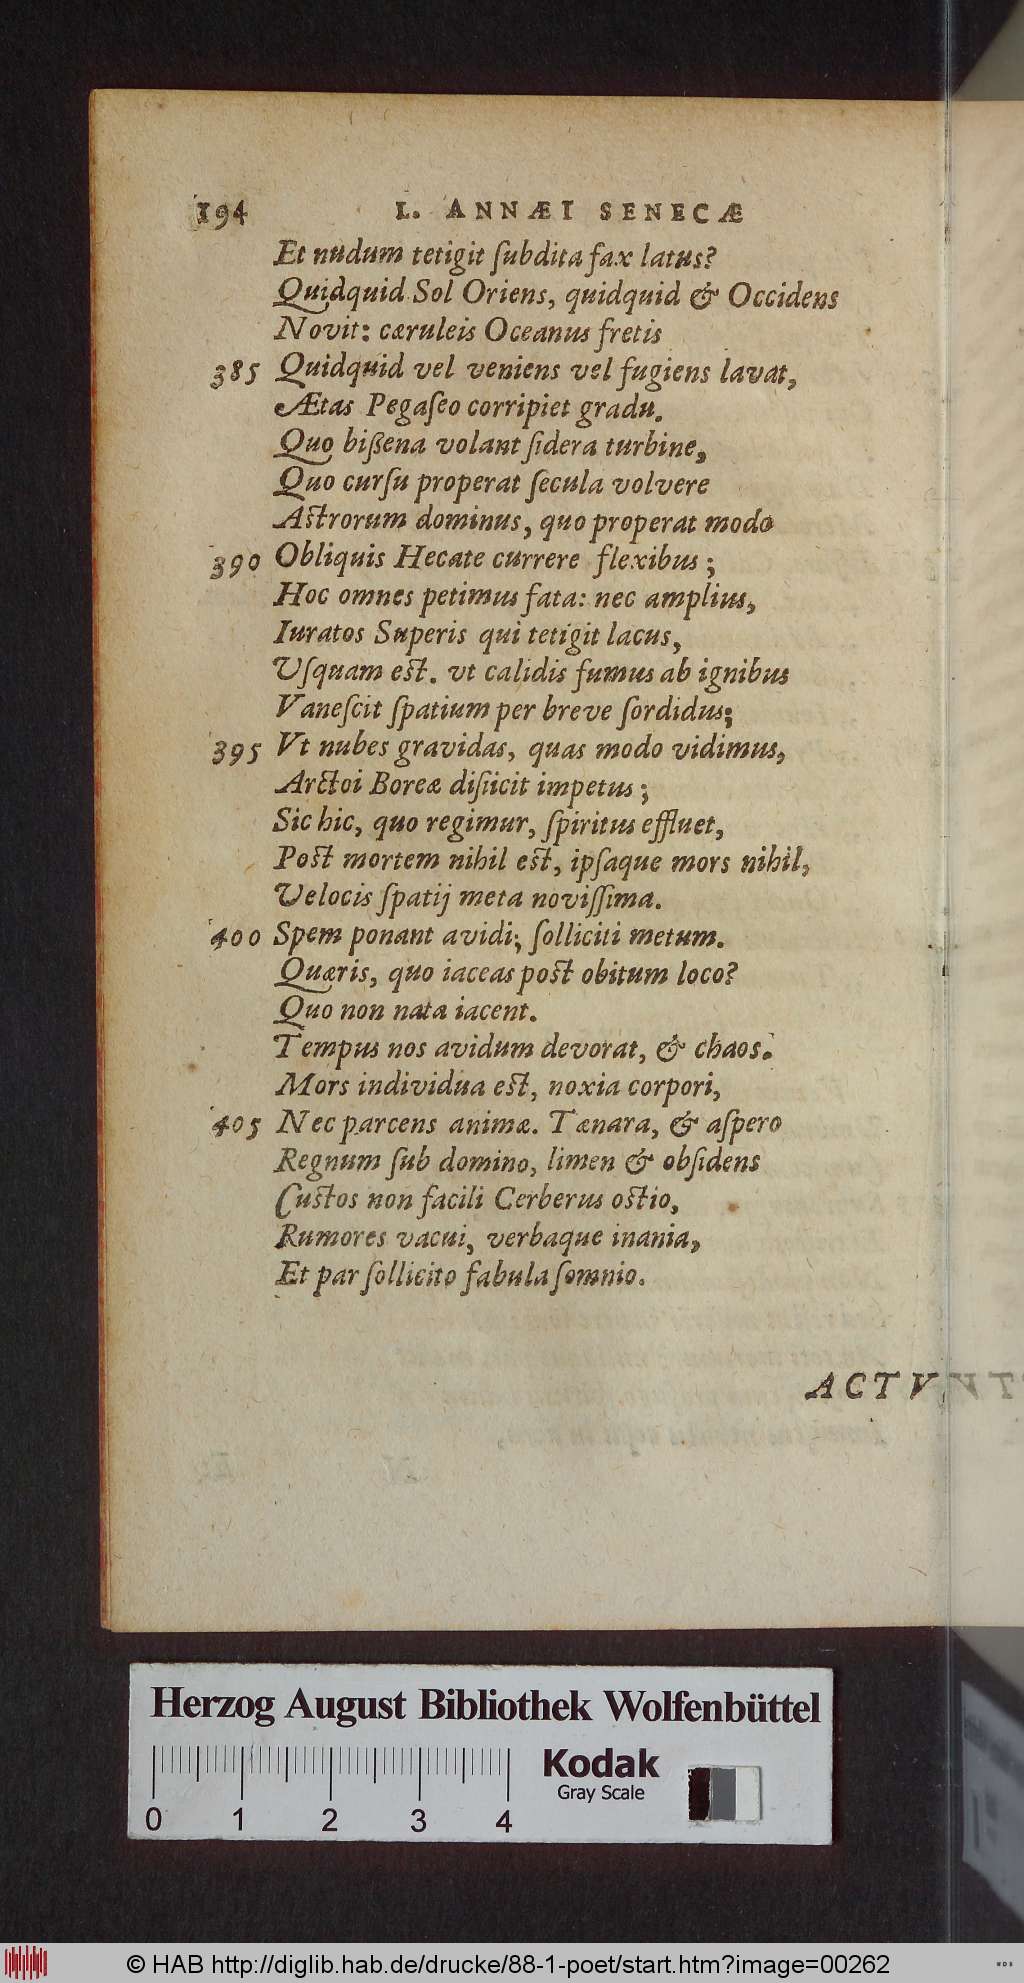 194 L. ANNÆI SENECÆ
Et nudum tetigit ſubdita fax latus?
Quidquid Sol Oriens, quidquid & Occidens
Novit: cæruleis Oceanus fretis
385 Quidquid vel veniens vel fugiens lavat,
Ætas Pegaſeo corripiet gradu.
Quo bißena volant ſidera turbine,
Quo curſu properat ſecula volvere
Aſtrorum dominus, quo properat modo
390 Obliquis Hecate currere flexibus;
Hoc omnes petimus fata: nec amplius,
Iuratos Superis qui tetigit lacus,
Uſquam eſt. vt calidis fumus ab ignibus
Vaneſcit ſpatium per breve ſordidus;
395 Vt nubes gravidas, quas modo vidimus,
Arctoi Boreæ diſiicit impetus;
Sic hic, quo regimur, ſpiritus effluet,
Poſt mortem nihil eſt, ipſaque mors nihil,
Velocis ſpatij meta noviſſima.
400 Spem ponant avidi; ſolliciti metum.
Quæris, quo iaceas poſt obitum loco?
Quo non nata iacent.
Tempus nos avidum devorat, & chaos.
Mors individua eſt, noxia corpori,
405 Nec parcens animæ. Tænara, & aſpero
Regnum ſub domino, limen & obſidens
Cuſtos non facili Cerberus oſtio,
Rumores vacui, verbaque inania,
Et par ſollicito fabula ſomnio.
ACTV
Herzog August Bibliothek Wolfenbüttel
Kodak
Gray Scale
0 1 2 3 4
© HAB http://diglib.hab.de/drucke/88-1-poet/start.htm?image=00262